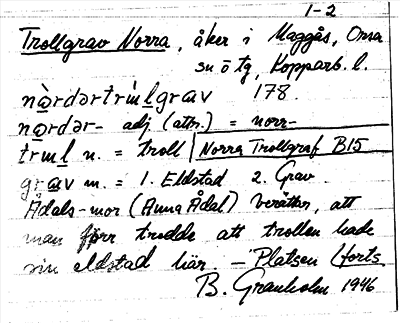 1-2
Trollgrav Norra, åker i Maggås, Orsa
sn ö tg, Kopparb. l.
nòrdərtrúlgrav 178.
nordər- adj. (attr.) = norr-
trul n. = troll | Norra Trollgraf B15
grav m. = 1. Eldstad 2. Grav
Ådals-mor (Anna Ådal) berättar, att
man förr trodde att trollen hade
sin eldstad här – Platsen (forts
B. Granholm 1946